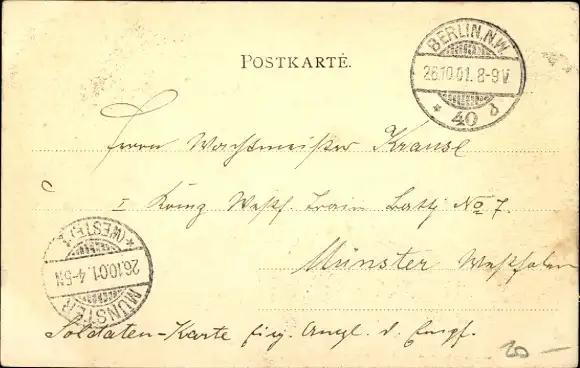 POSTKARTE.
BERLIN, N.W.
26.10.01. 8-9V
* 40 d
Herrn Wachtmeister Krause
I Komp Westf. Train Batl No 7.
Münster Westfalen
MÜNSTER
26.10.01. 4-5N
* (WESTF.) 1
Soldaten-Karte Eig. Angl. d. Empf.
20 —